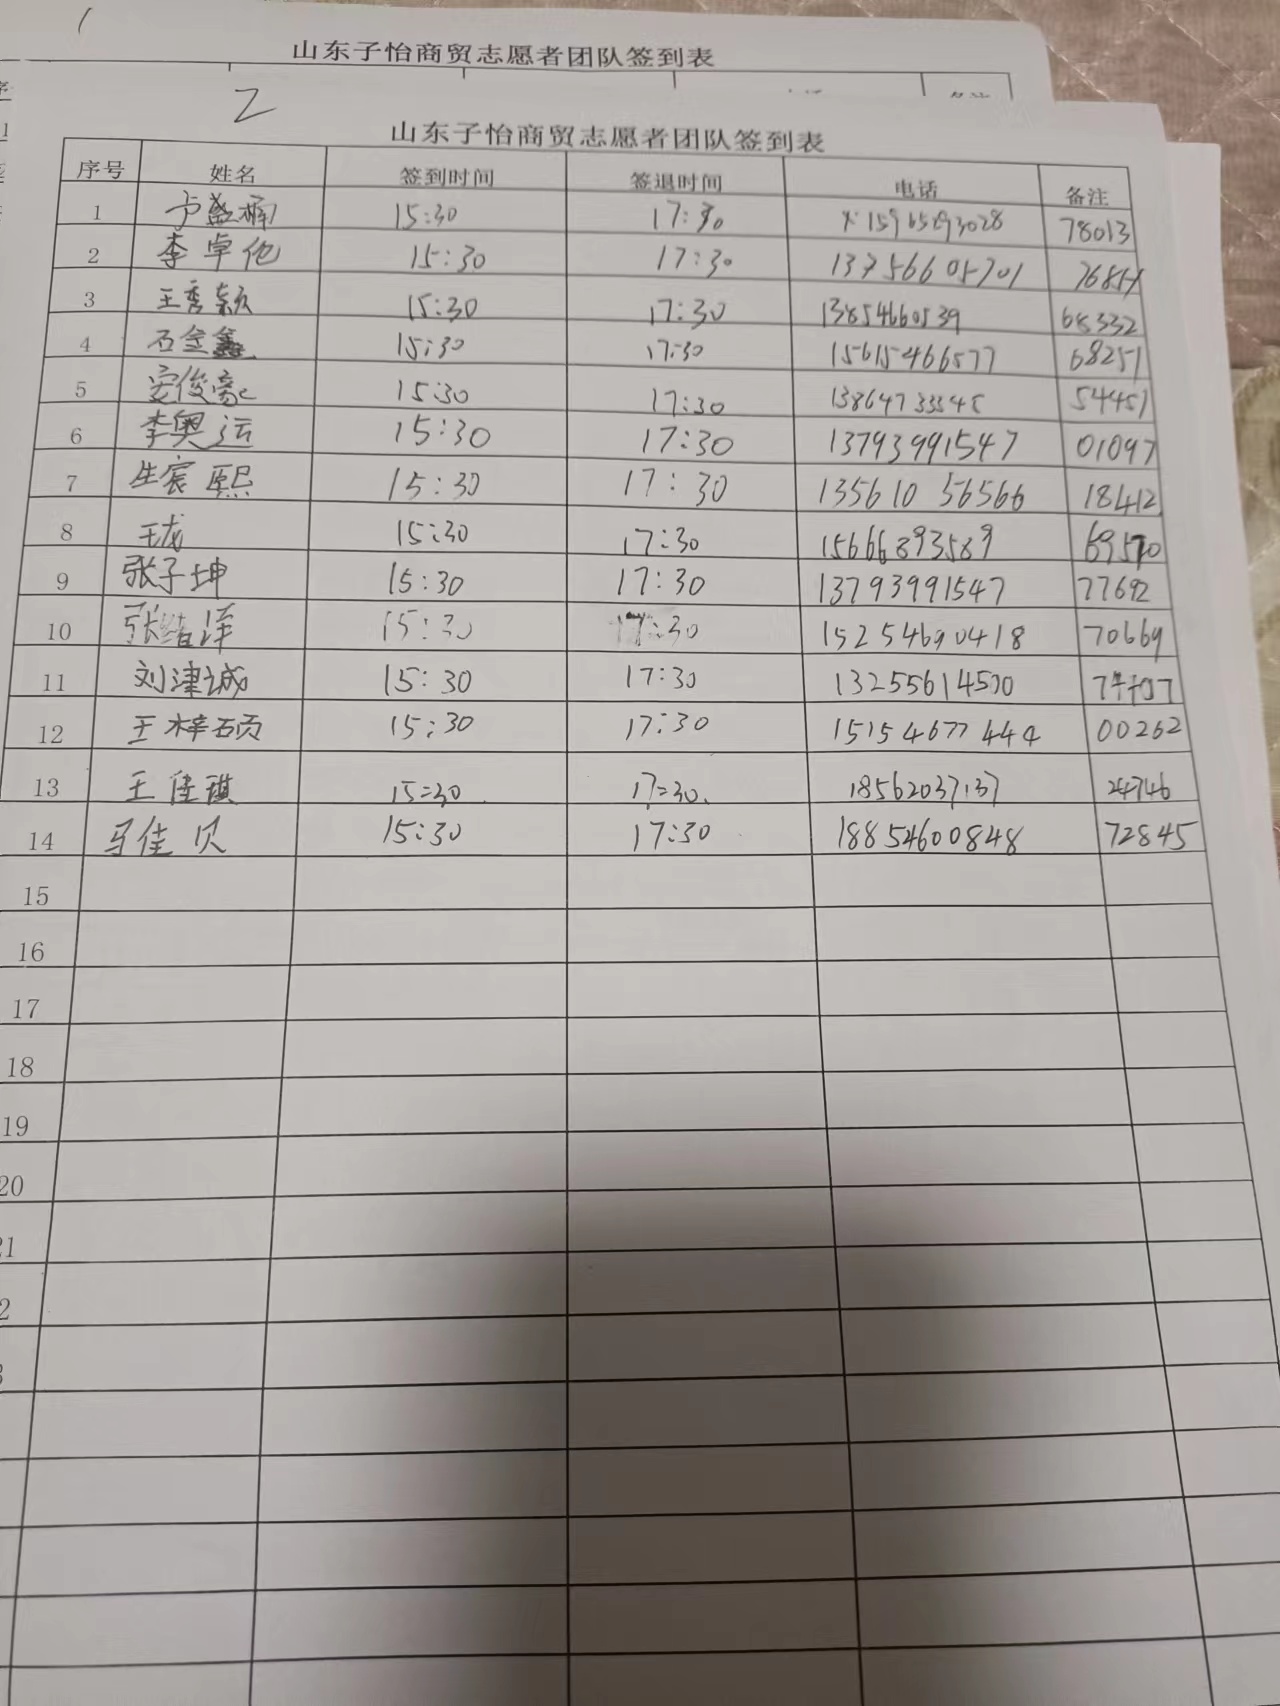 1
山东子怡商贸志愿者团队签到表
2
山东子怡商贸志愿者团队签到表
序号 姓名 签到时间 签退时间 电话 备注
1 15:30 17:30 78013
2 李卓 15:30 17:30
3 王秀颖 15:30 17:30 13854660539 68332
4 石金鑫 15:30 17:30 15615466577 68251
5 安俊豪 15:30 17:30 54451
6 李奥运 15:30 17:30 13793991547 01097
7 生宸熙 15:30 17:30 135610 56566 18412
8 王龙 15:30 17:30 15666893589
9 张子坤 15:30 17:30 13793991547 77692
10 15:30 17:30 15254690418 70669
11 刘津诚 15:30 17:30 13255614500
12 王梓硕 15:30 17:30 15154677444 00262
13 王佳琪 15:30 17:30. 18562037137 24746
14 马佳贝 15:30 17:30 18854600848 72845
15
16
17
18
19
20
21